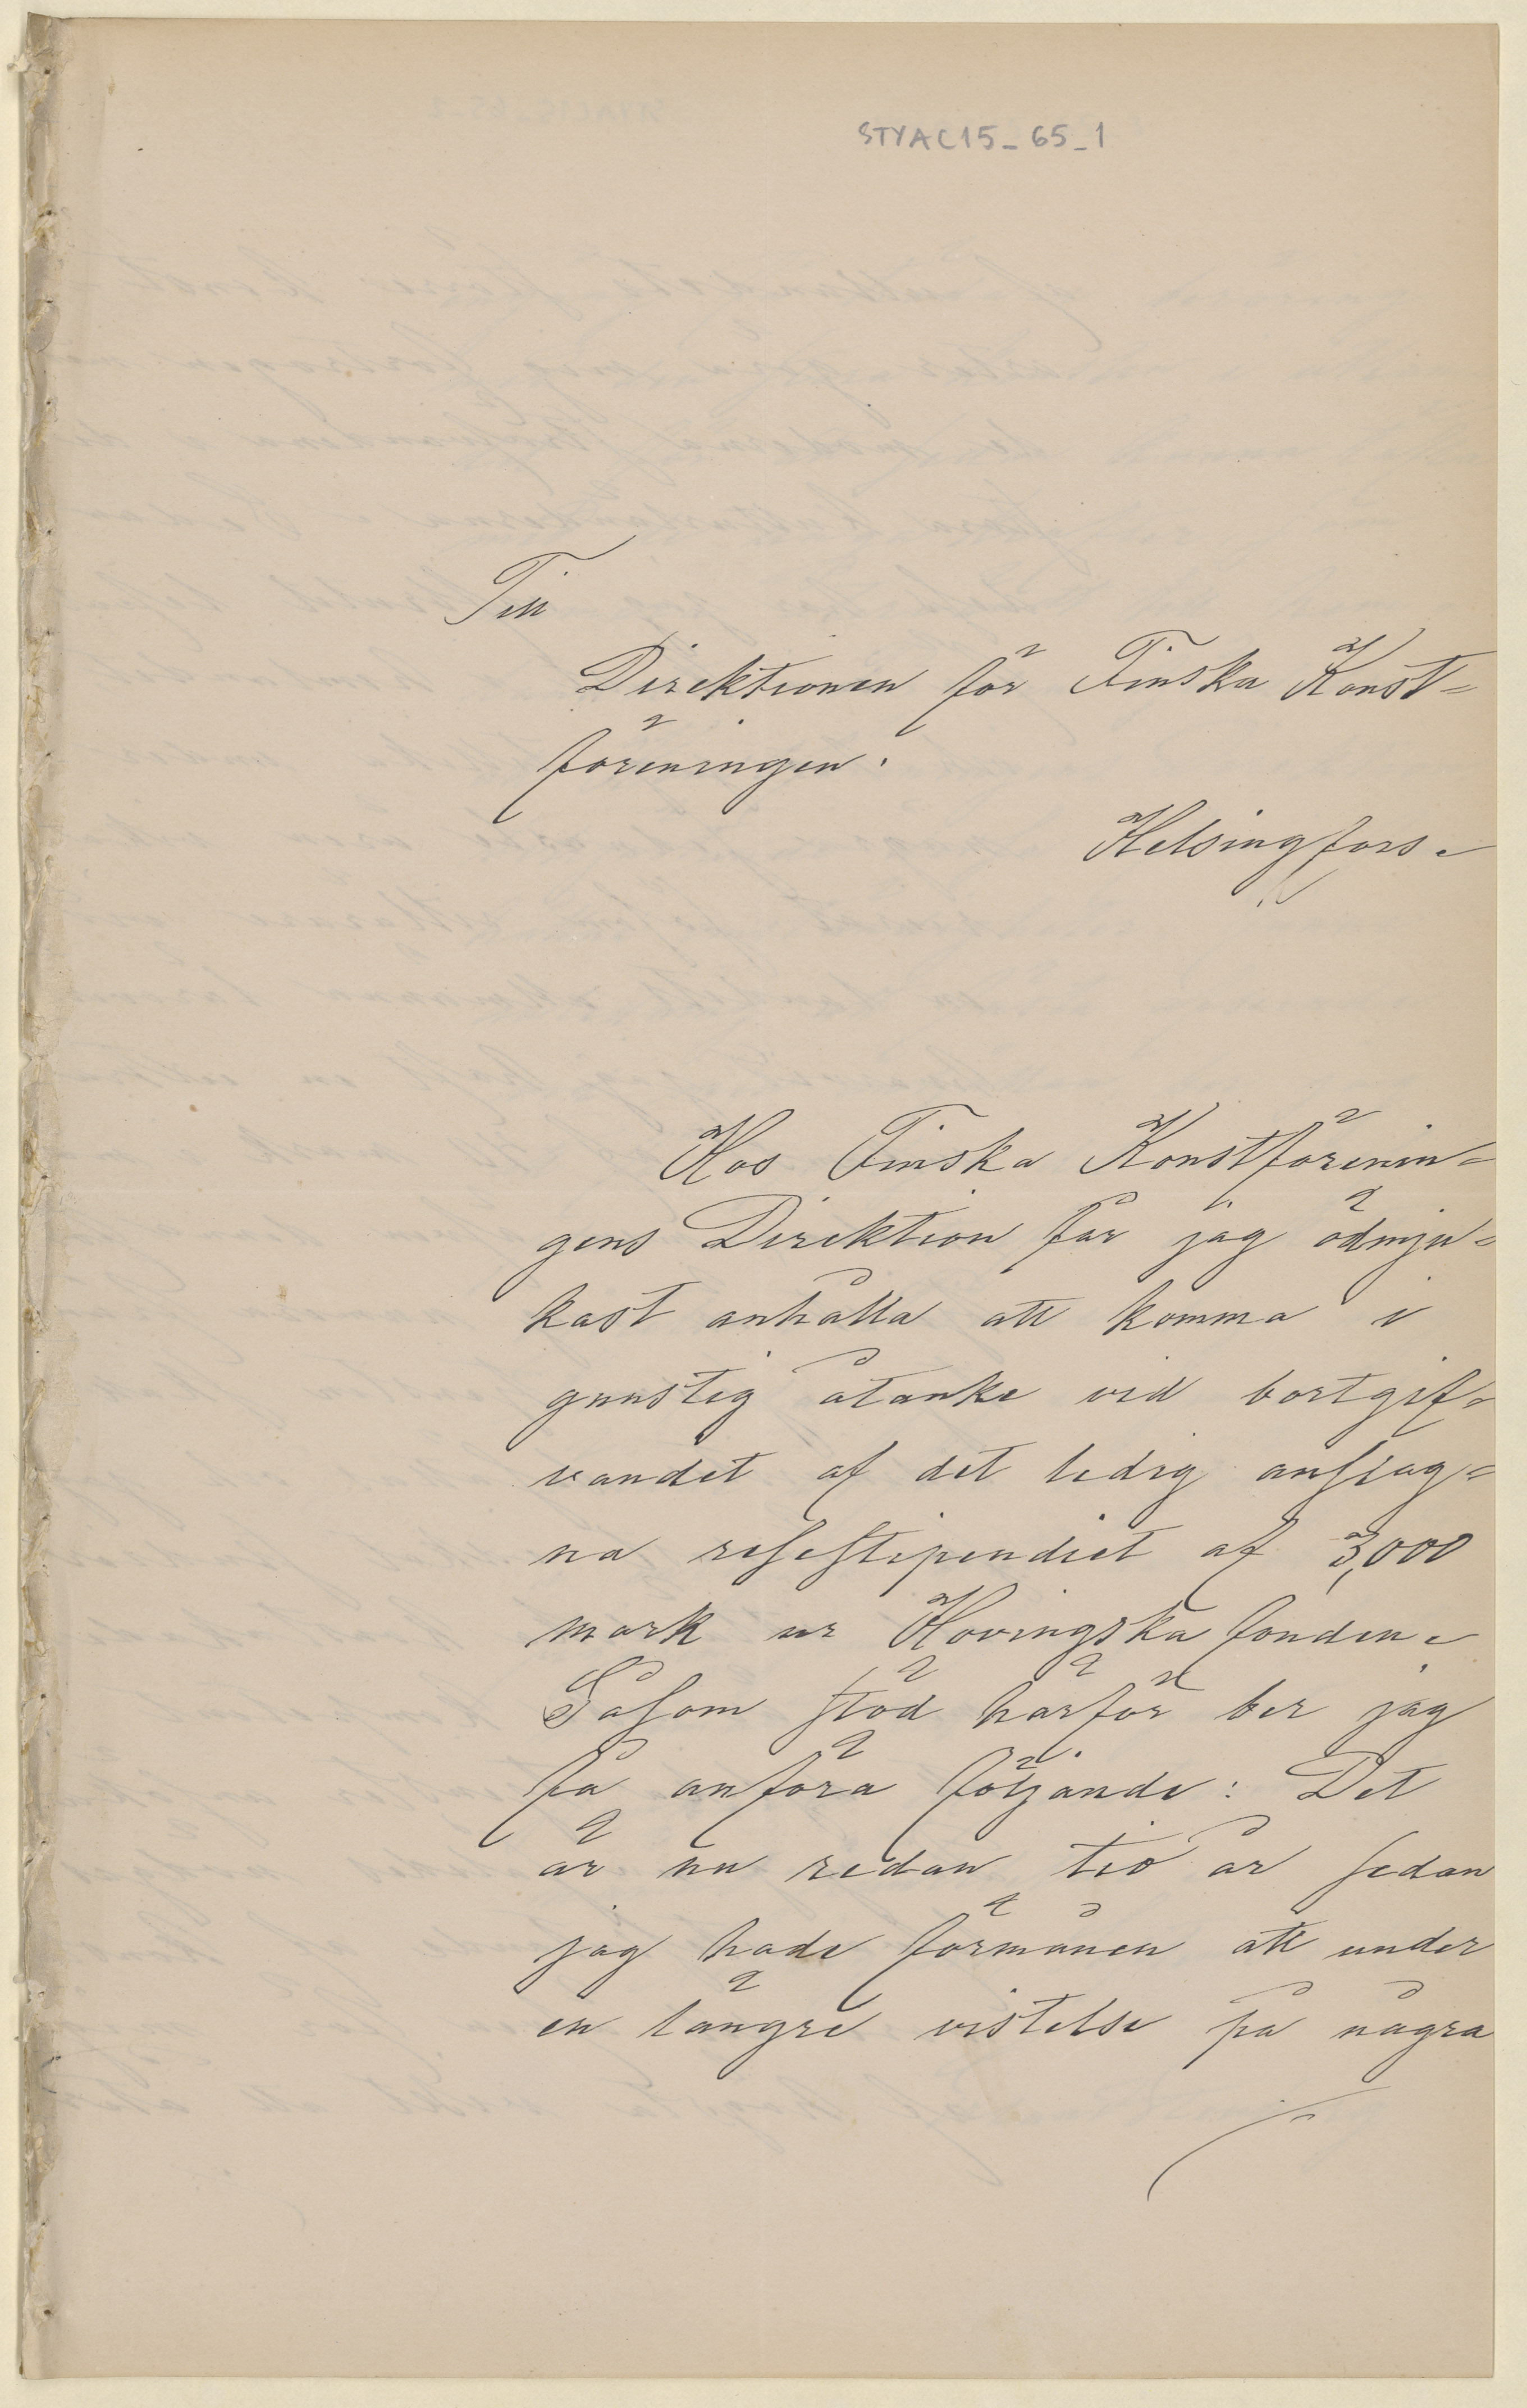 STYAC15_65_1
Till
Direktionen för Finska Konst=
föreningen.
Helsingfors.
Hos Finska Konstförenin=
gens Direktion får jag ödmju=
kast anhålla att komma i
gunstig åtanke vid bortgif=
vandet af det ledig anslag=
na resestipendiet af 3,000
mark ur Hovingska fonden.
Såsom stöd härför ber jag
få anföra följande: Det
är nu redan tio år sedan
jag hade förmånen att under
en längre vistelse på några